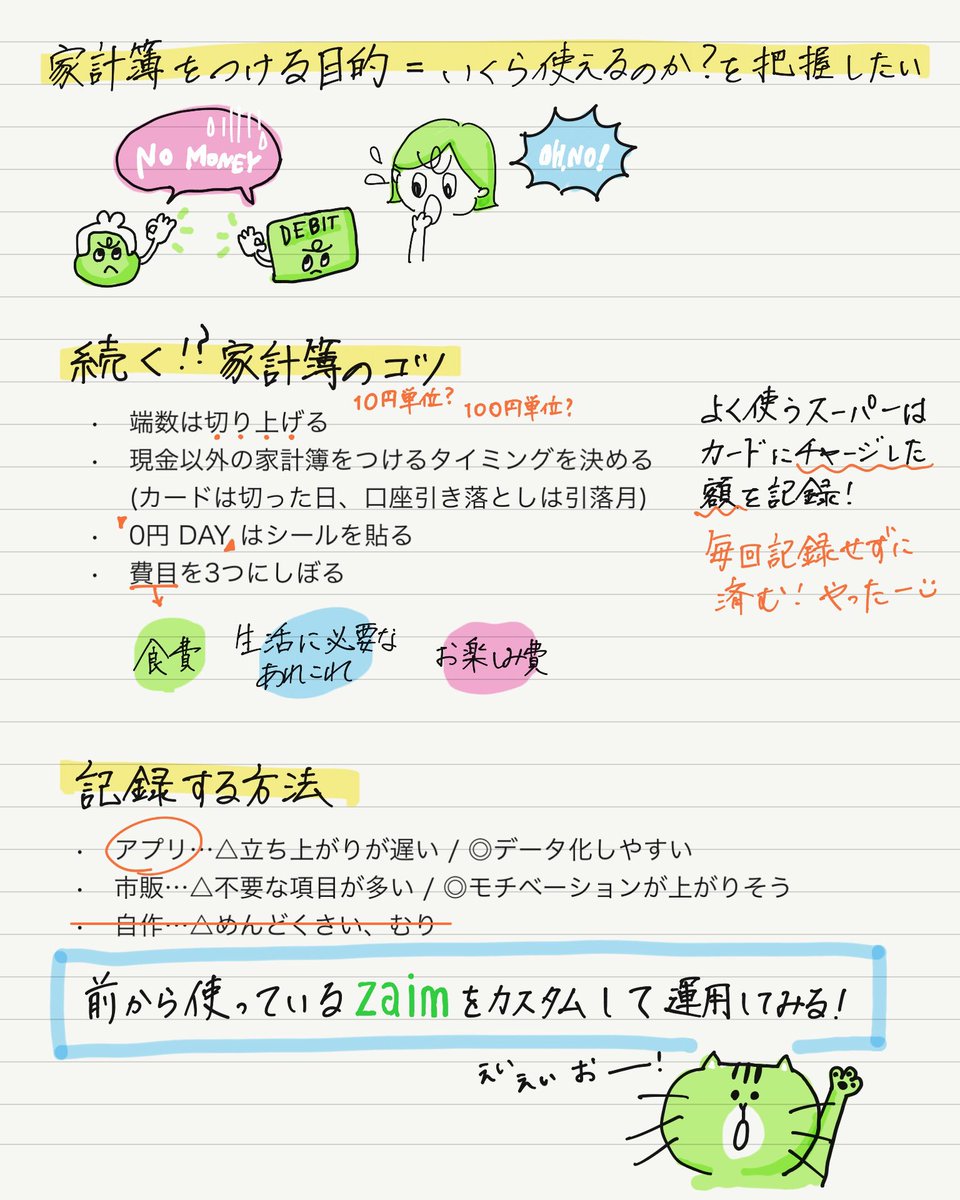 家計簿をつける目的=いくら使えるのか?を把握したい
NO MONEY
OH,NO!
DEBIT
続く!?家計簿のコツ
10円単位? 100円単位?
・ 端数は切り上げる
・ 現金以外の家計簿をつけるタイミングを決める
(カードは切った日、口座引き落としは引落月)
・ "0円 DAY"はシールを貼る
・ 費目を3つにしぼる
よく使うスーパーは
カードにチャージした
額を記録!
毎回記録せずに
済む!やったー
食費
生活に必要な
あれこれ
お楽しみ費
記録する方法
・ アプリ…△立ち上がりが遅い / ◎データ化しやすい
・ 市販…△不要な項目が多い / ◎モチベーションが上がりそう
・ 自作…△めんどくさい、むり
前から使っているzaimをカスタムして運用してみる!
えいえいおー!